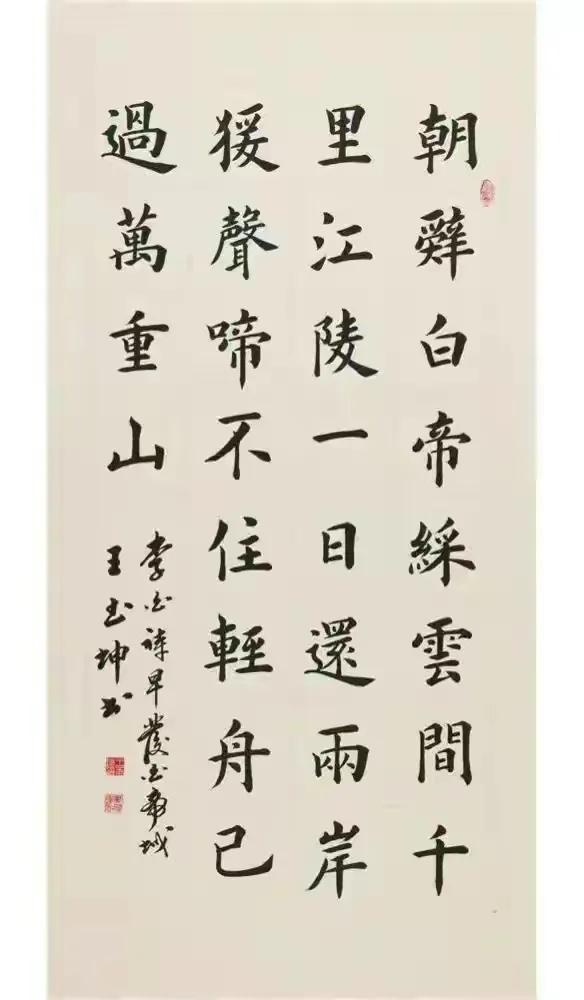 朝辤白帝綵雲間千
里江陵一日還兩岸
猨聲啼不住輕舟已
過萬重山
李白詩早發白帝城
王玉坤书